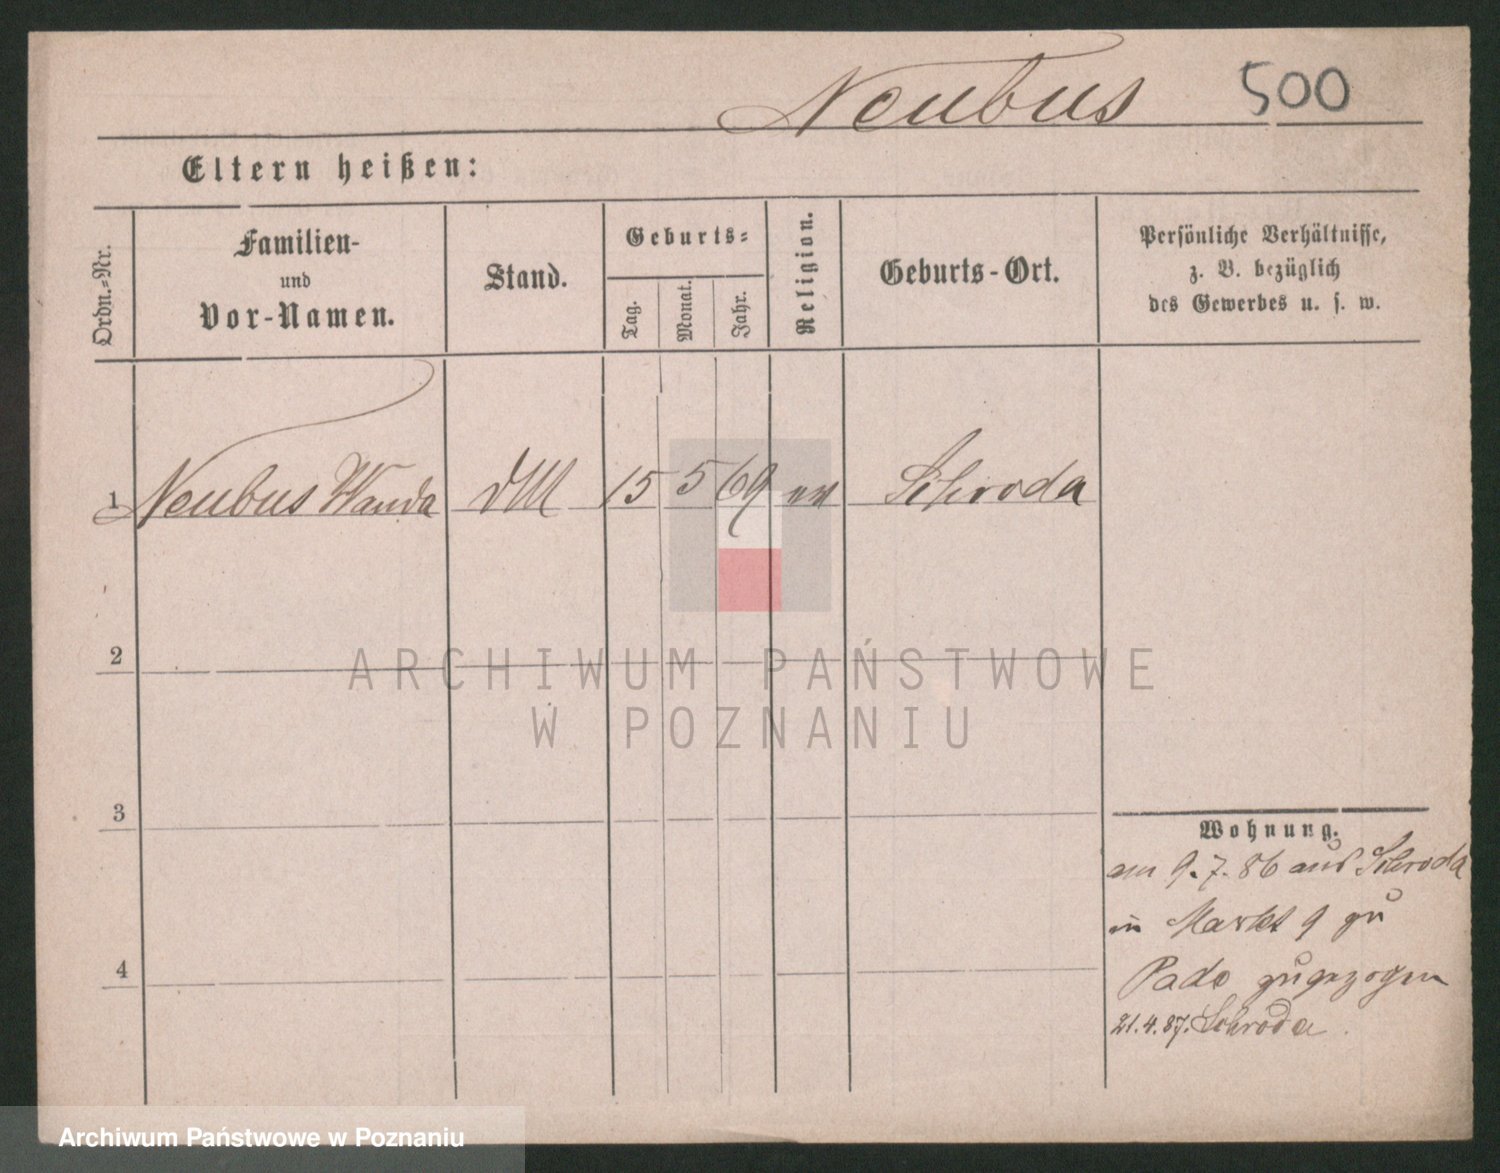 Neubus 500
Eltern heißen:
Ordn.-Nr.
Familien-
und
Vor-Namen.
Stand.
Geburts-
Tag.
Monat.
Jahr.
Religion.
Geburts-Ort.
Persönliche Verhältnisse,
z. B. bezüglich
des Gewerbes u. s. w.
1 Neubus Wanda DM 15 5 69 Schroda
2
3
4
Wohnung.
am 9.7.86 aus Schroda
in Markt 9 zu
zugezogen
21.4.87. Schroda
ARCHIWUM PAŃSTWOWE
W POZNANIU
Archiwum Państwowe w Poznaniu